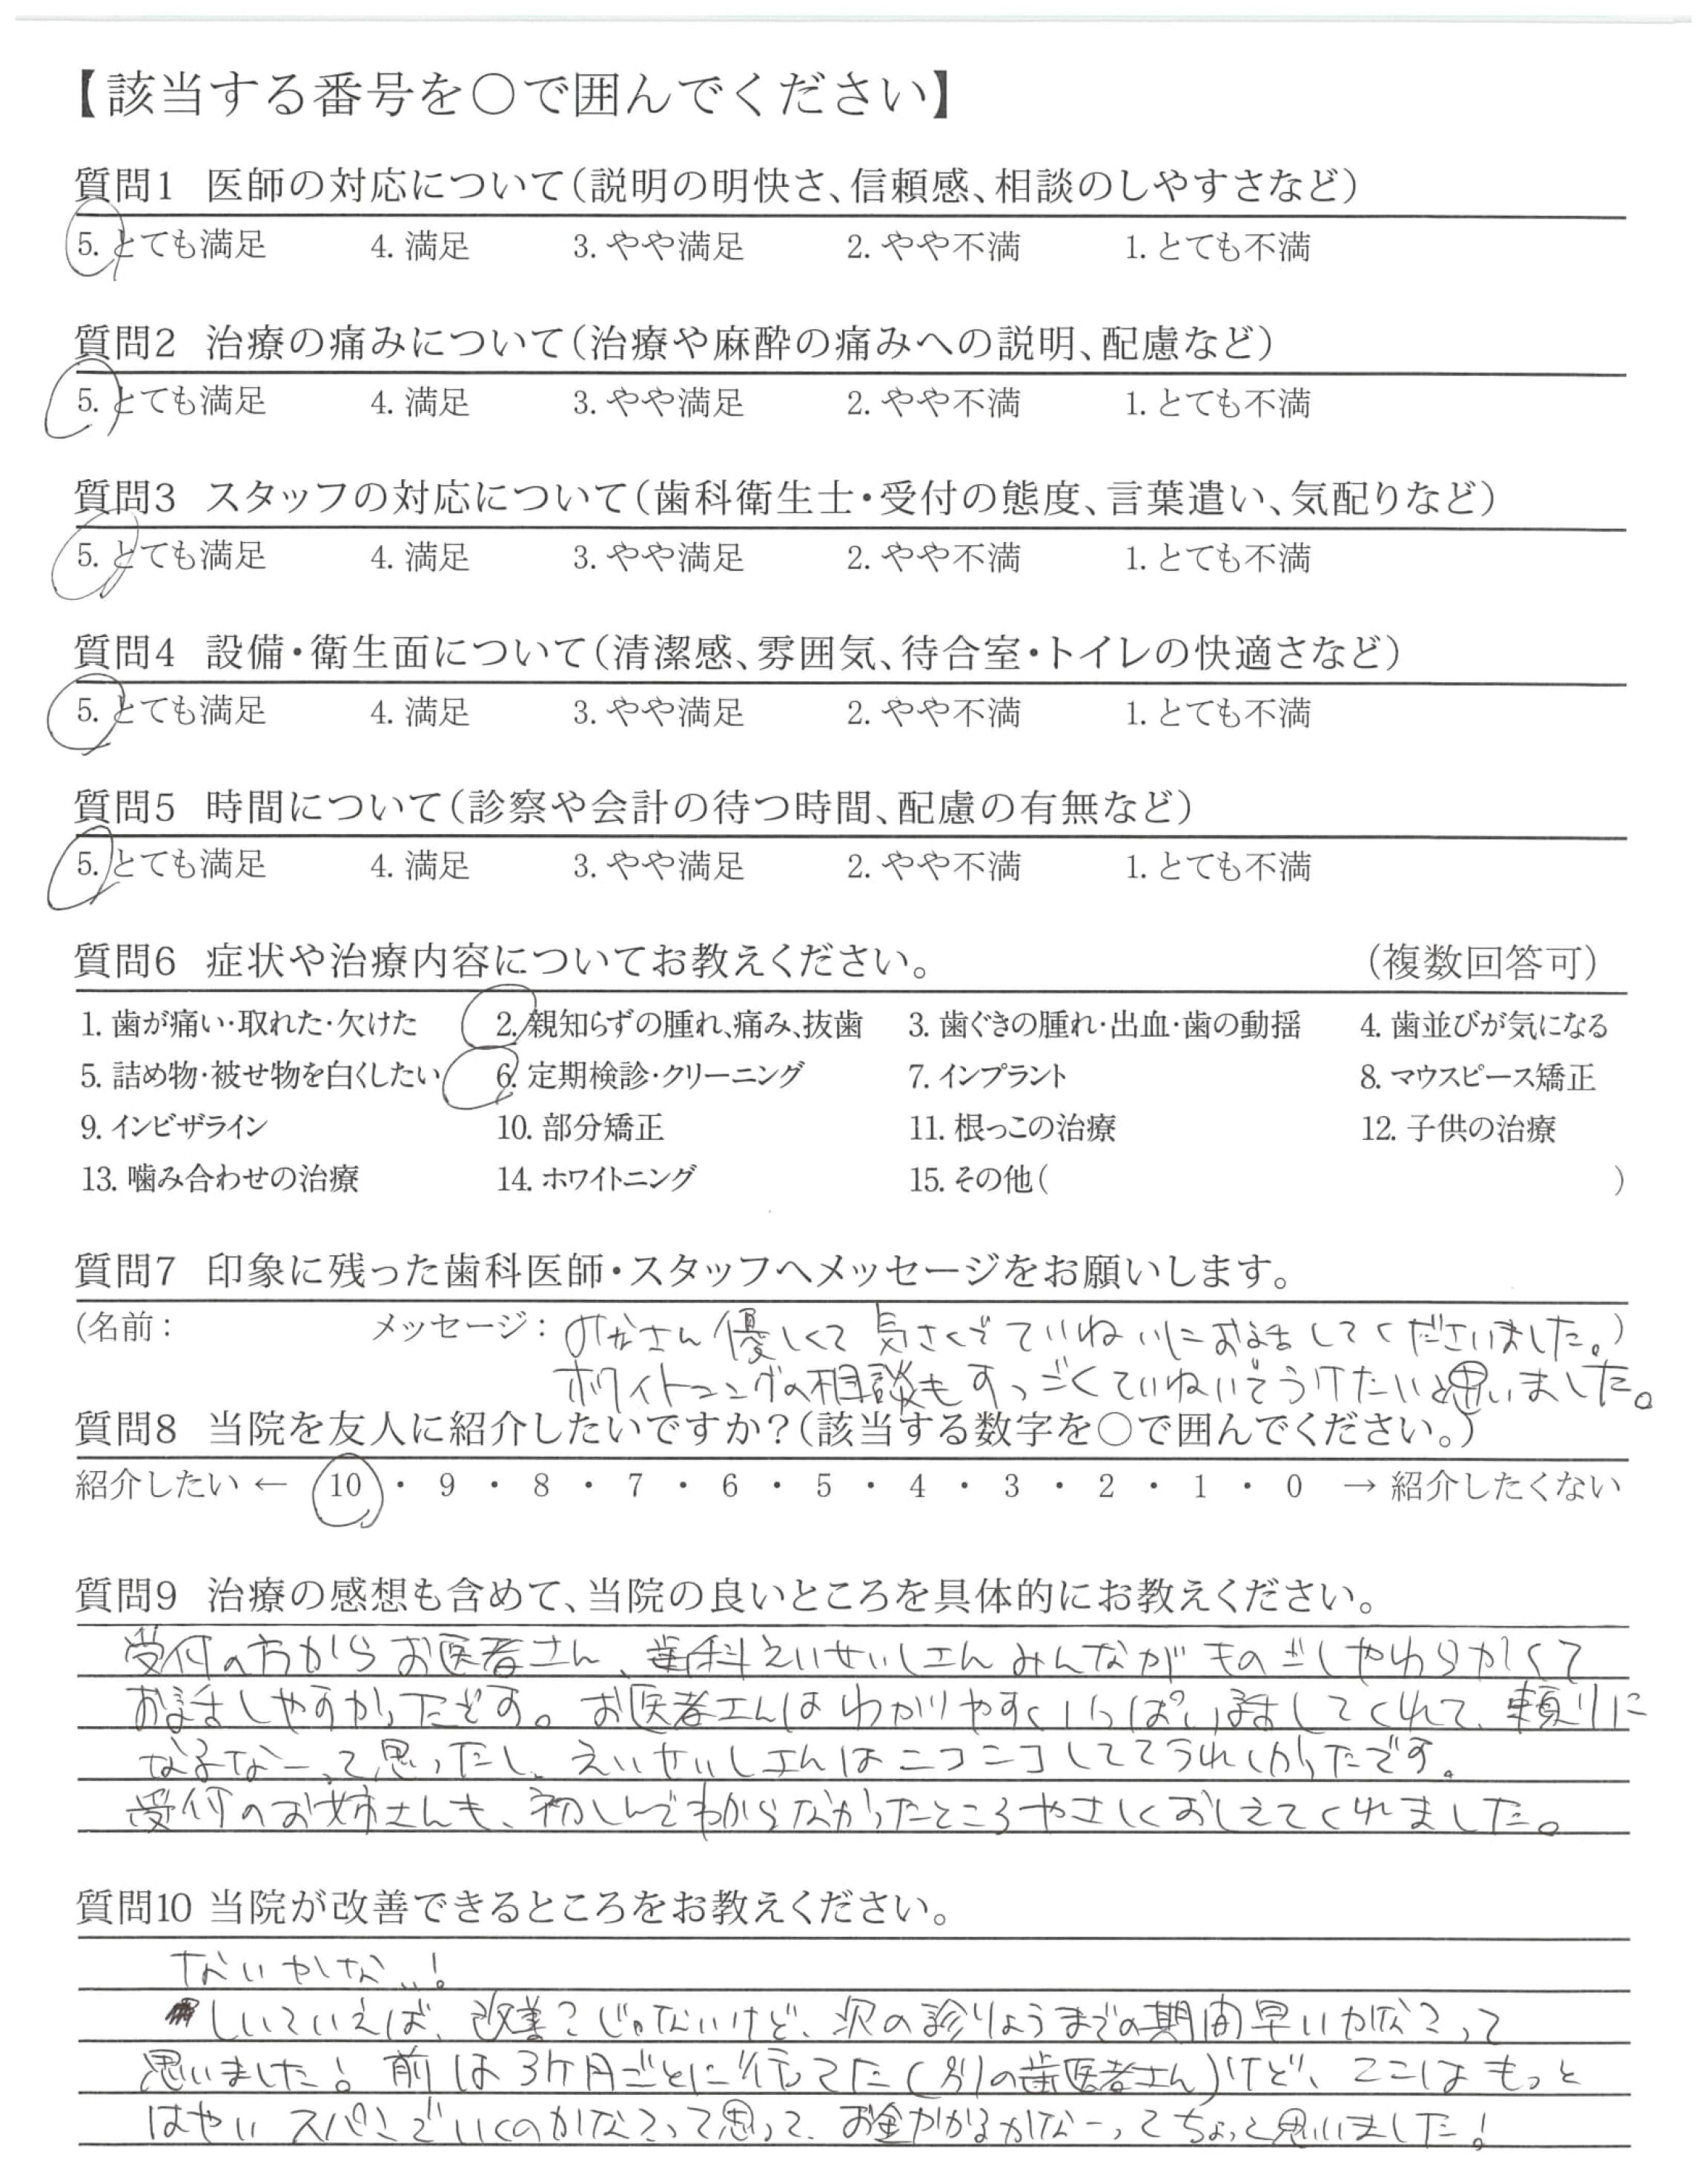 【該当する番号を○で囲んでください】
質問1 医師の対応について(説明の明快さ、信頼感、相談のしやすさなど)
5. とても満足 4. 満足 3. やや満足 2. やや不満 1. とても不満
質問2 治療の痛みについて(治療や麻酔の痛みへの説明、配慮など)
5. とても満足 4. 満足 3. やや満足 2. やや不満 1. とても不満
質問3 スタッフの対応について(歯科衛生士・受付の態度、言葉遣い、気配りなど)
5. とても満足 4. 満足 3. やや満足 2. やや不満 1. とても不満
質問4 設備・衛生面について(清潔感、雰囲気、待合室・トイレの快適さなど)
5. とても満足 4. 満足 3. やや満足 2. やや不満 1. とても不満
質問5 時間について(診察や会計の待つ時間、配慮の有無など)
5. とても満足 4. 満足 3. やや満足 2. やや不満 1. とても不満
質問6 症状や治療内容についてお教えください。 (複数回答可)
1. 歯が痛い・取れた・欠けた 2. 親知らずの腫れ、痛み、抜歯 3. 歯ぐきの腫れ・出血・歯の動揺 4. 歯並びが気になる
5. 詰め物・被せ物を白くしたい 6. 定期検診・クリーニング 7. インプラント 8. マウスピース矯正
9. インビザライン 10. 部分矯正 11. 根っこの治療 12. 子供の治療
13. 噛み合わせの治療 14. ホワイトニング 15. その他( )
質問7 印象に残った歯科医師・スタッフへメッセージをお願いします。
(名前: メッセージ: みなさん優しくて気さくでていねいにお話してくださいました。)
ホワイトニングの相談もすっごくていねいでうけたいと思いました。
質問8 当院を友人に紹介したいですか?(該当する数字を○で囲んでください。)
紹介したい ← 10 ・ 9 ・ 8 ・ 7 ・ 6 ・ 5 ・ 4 ・ 3 ・ 2 ・ 1 ・ 0 → 紹介したくない
質問9 治療の感想も含めて、当院の良いところを具体的にお教えください。
受付の方からお医者さん、歯科えいせいしさんみんながものごしやわらかくて
お話しやすかったです。お医者さんはわかりやすくいっぱい話してくれて、頼りに
なるなーって思ったし、えいせいしさんはニコニコしててうれしかったです。
受付のお姉さんも、初しんでわからなかったところやさしくおしえてくれました。
質問10 当院が改善できるところをお教えください。
ないかな..!
しいていえば、改善?じゃないけど、次の診りょうまでの期間早いかな?って
思いました! 前は3ケ月ごとに行ってた(別の歯医者さん)けど、ここはもっと
はやいスパンでいくのかな?って思って、お金かかるかなーってちょっと思いました!